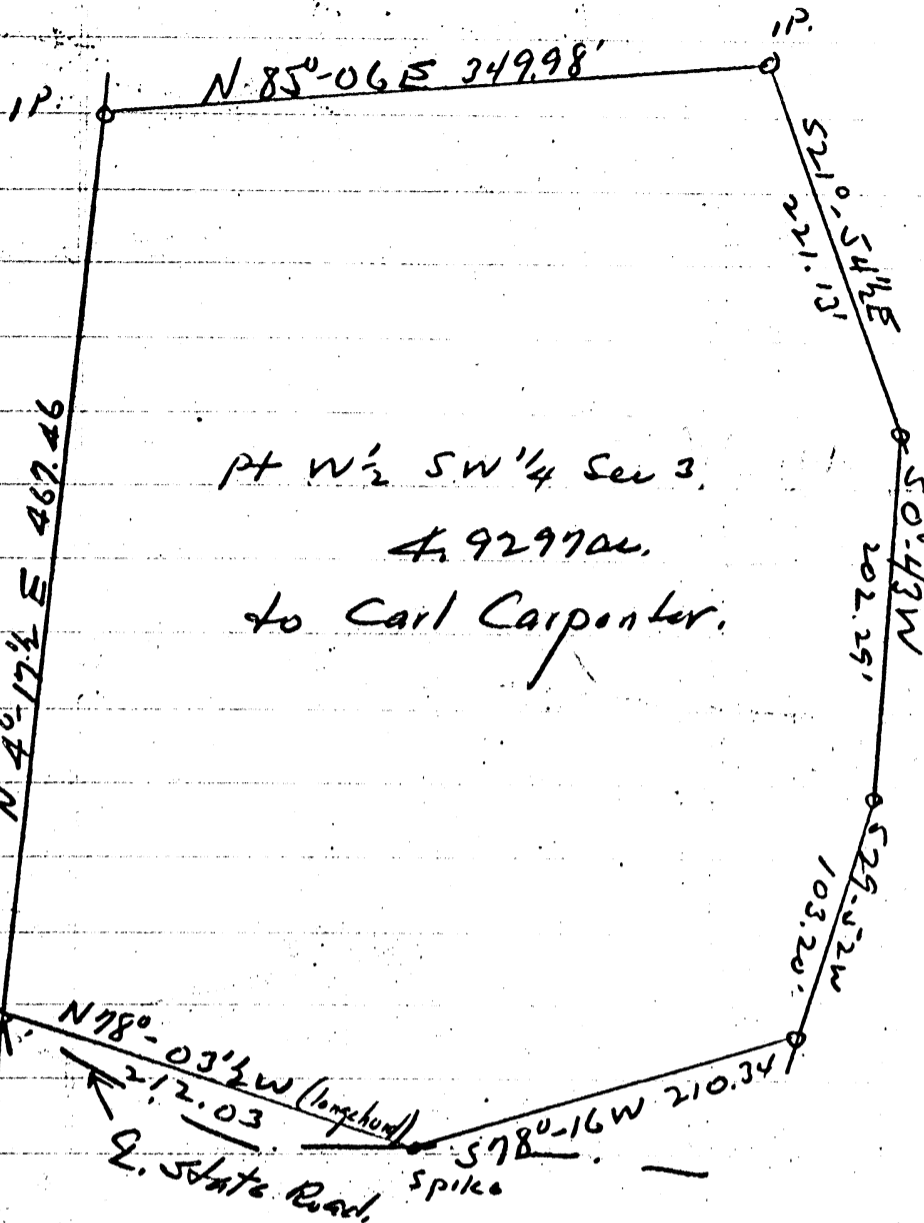 I.P.
N 85°-06 E 349.98'
I.P.
S21°-54½E
221.13'
S0°-43W
202.25'
103.20'
S78°-16W 210.34
spike
N78°-03½W (long chord)
212.03
℄. State Road.
N 4°-17½ E 467.46
pt W½ SW¼ Sec 3.
4.9297ac.
to Carl Carpenter.